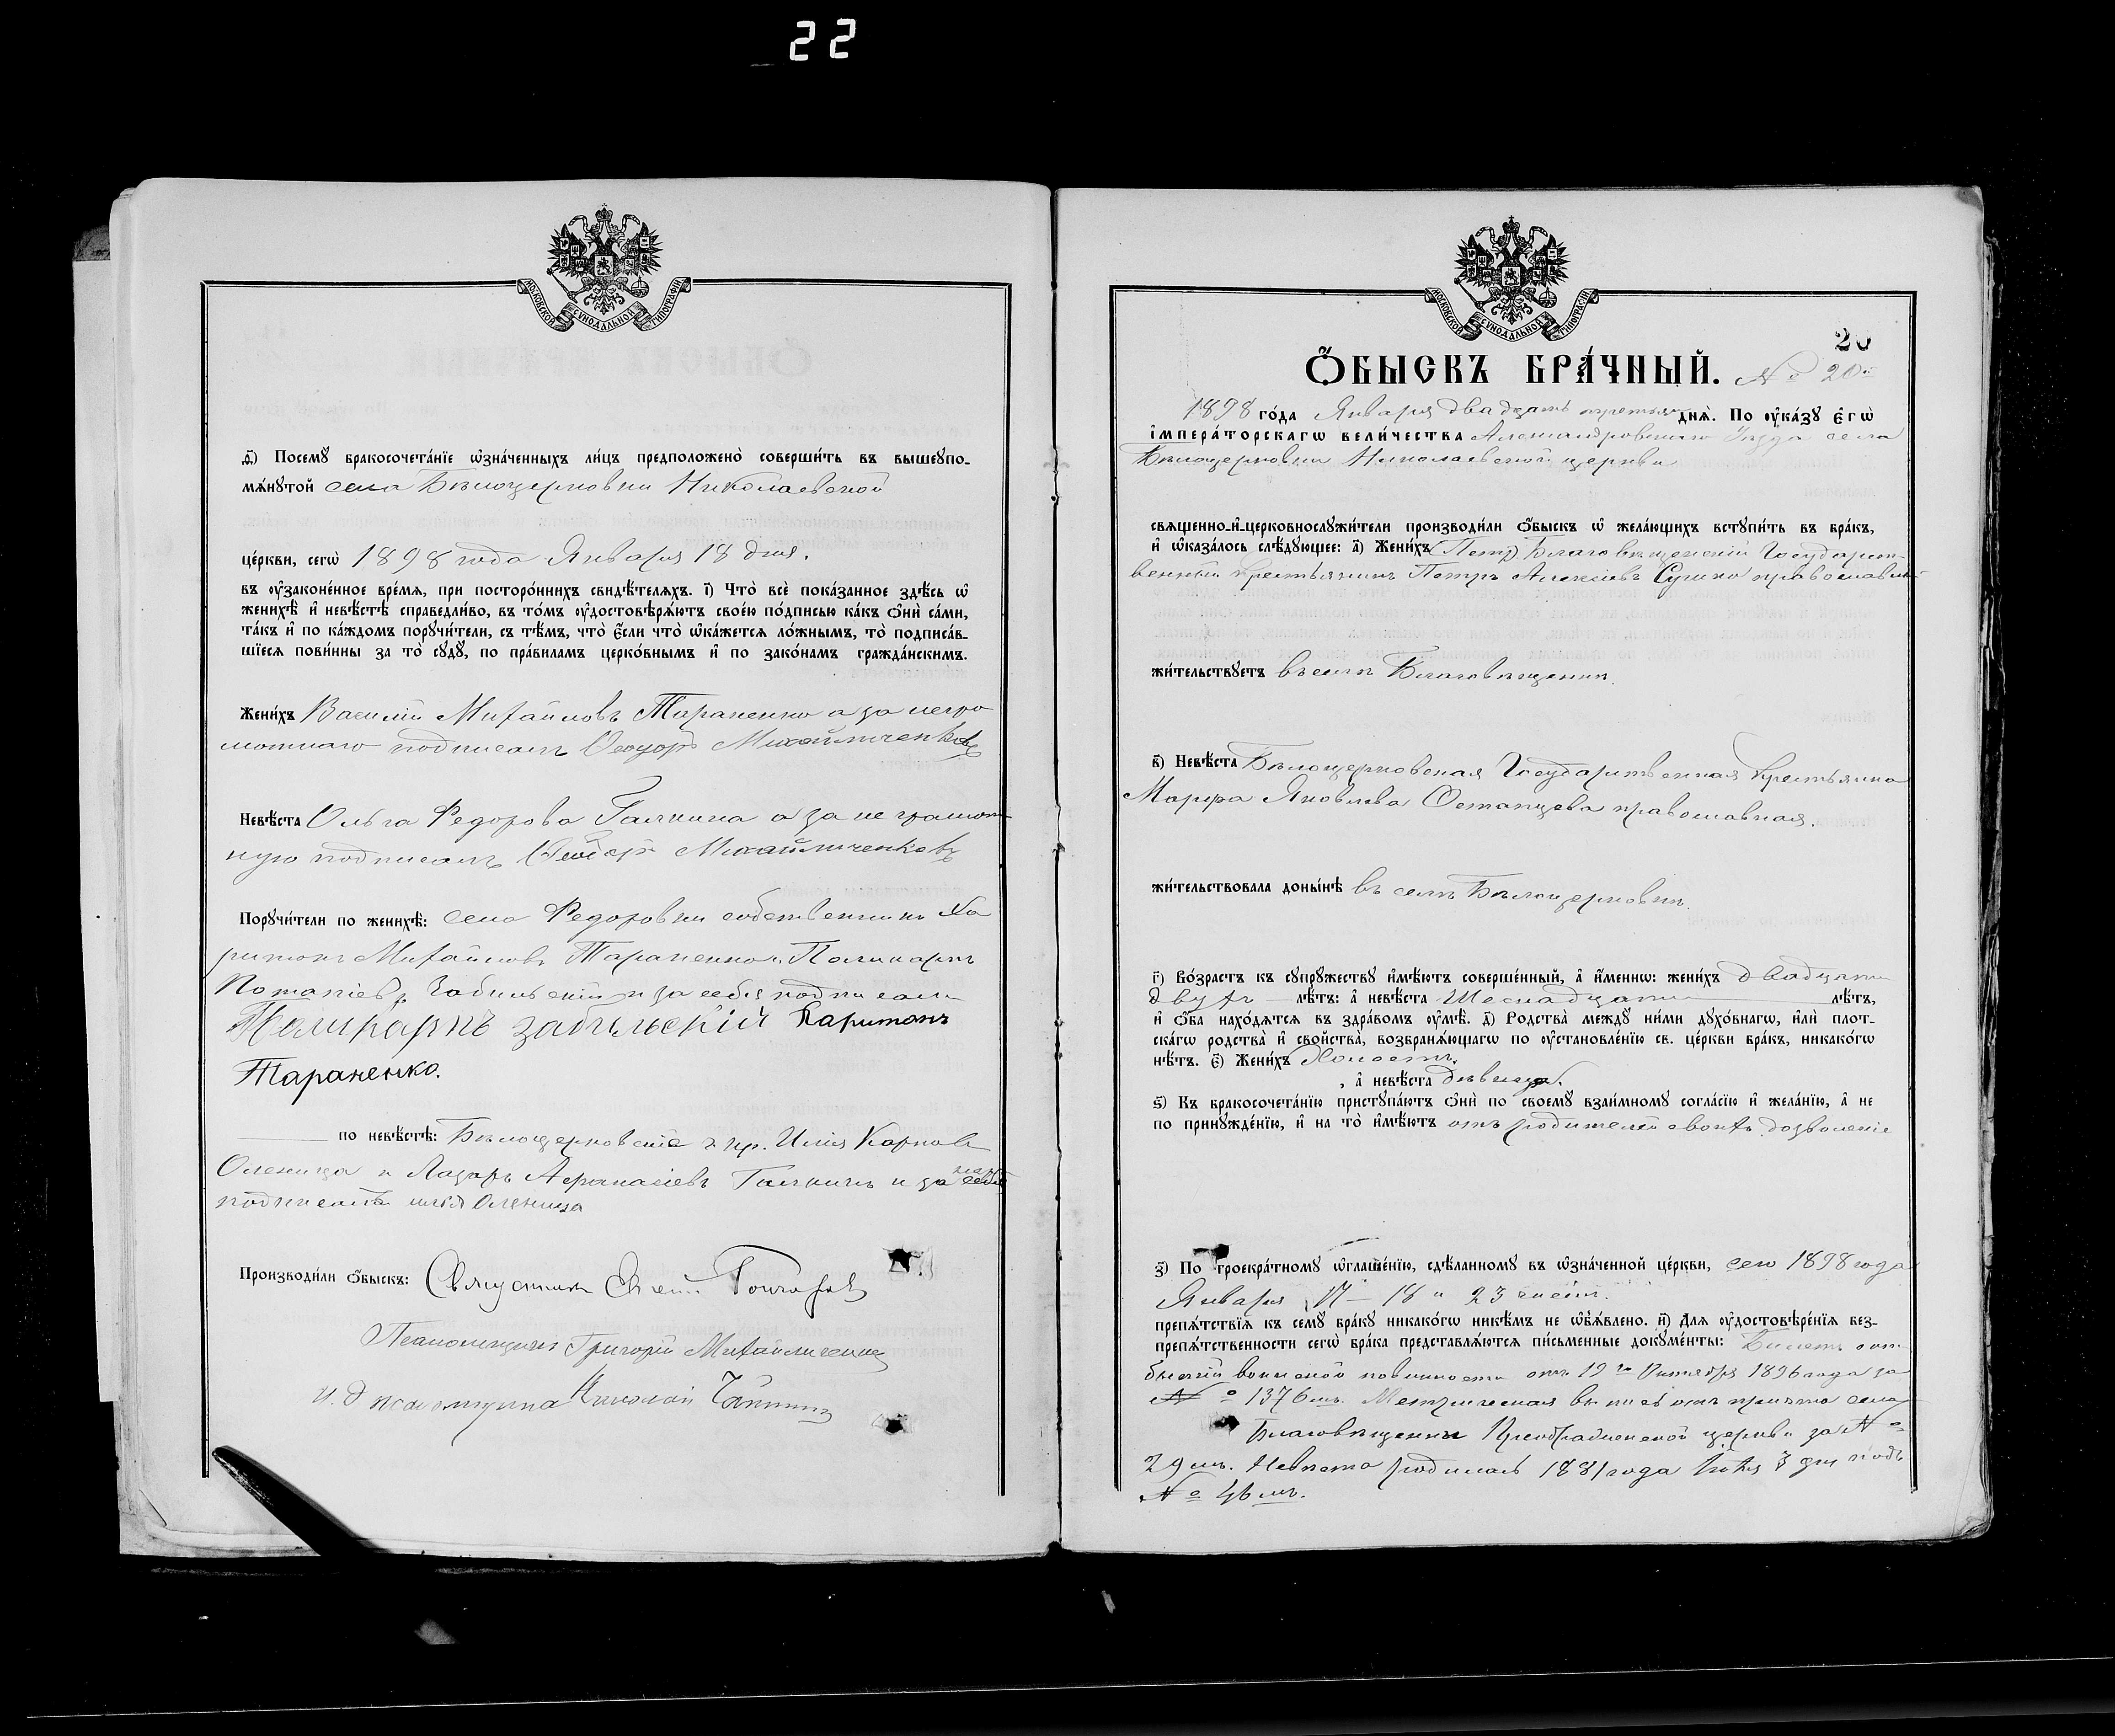 22
МОСКОВСКОЙ СѴНОДАЛЬНОЙ ТИПОГРАФІИ
ѳ҃) Посемꙋ̀ бракосочета́нїе ѡ҆зна́ченныхъ ли́цъ предположено̀ соверши́ть въ вышеꙋпо-
мѧ́нꙋтой села Бѣлоцерковки Николаевской
це́ркви, сегѡ̀ 1898 года Января 18 дня.
въ ᲂу҆зако́ненное вре́мѧ, при посторо́ннихъ свидѣ́телѧхъ. і҃) Что̀ всѐ пока́занное здѣ́сь ѡ҆
женихѣ̀ и҆ невѣ́стѣ справедли́во, въ то́мъ ᲂу҆достовѣрѧ́ютъ свое́ю по́дписью ка́къ ѻ҆нѝ са́ми,
та́къ и҆ по ка́ждомъ порꙋчи́тели, съ тѣ́мъ, что̀ є҆́сли что̀ ѡ҆ка́жетсѧ ло́жнымъ, то̀ подписа́в-
шїесѧ пови́нны за то̀ сꙋдꙋ̀, по пра́виламъ церко́внымъ и҆ по зако́намъ гражда́нскимъ.
Жени́хъ Василій Михайловъ Тараненко а за негра
мотнаго подписалъ Ѳеодоръ Михайличенковъ
Невѣ́ста Ольга Федорова Галкина а за не грамот
ную подписалъ Михайличенковъ
Порꙋчи́тели по женихѣ̀: села Федоровки собственники Ха
ритонъ Михайловъ Тараненко и Поликарпъ
Потапіевъ Забильскій и за себя подписали
Поликарпъ забильскій Харитонъ
Тараненко.
по невѣ́стѣ: Бѣлоцерковскіе г. кр. Илія Карповъ
Оленица и Лазарь Афанасіевъ Галкинъ и за себя
подписалъ илія Оленица
Производи́ли ѻ҆́быскъ: Священникъ Гончаровъ
Псаломщикъ Григорій Михайличенко
и. д. псаломщика Николай
МОСКОВСКОЙ СѴНОДАЛЬНОЙ ТИПОГРАФІИ
20
Ѻ҆́БЫСКЪ БРА́ЧНЫЙ. № 20й
1898 го́да Января двадцать третья днѧ̀. По ᲂу҆ка́зꙋ є҆гѡ̀
і҆мпера́торскагѡ вели́чества Александровскаго Уѣзда села
Бѣлоцерковки Николаевской церкви
свѧщенно-и҆-церковнослꙋжи́тели производи́ли ѻ҆́быскъ ѡ҆ жела́ющихъ встꙋпи́ть въ бра́къ,
и҆ ѡ҆каза́лось слѣ́дꙋющее: а҃) Жени́хъ (Петр) Благовѣщенскій Государст-
венный крестьянинъ Петръ Алексіевъ Сушко православный
жи́тельствꙋетъ въ селѣ Благовѣщенкѣ.
в҃) Невѣ́ста Бѣлоцерковская Государственная крестьянка
Марфа Яковлева Остапцева православная.
жи́тельствовала доны́нѣ въ селѣ Бѣлоцерковкѣ.
г҃) Во́зрастъ къ сꙋпрꙋ́жествꙋ и҆мѣ́ютъ соверше́нный, а҆ и҆́меннѡ: жени́хъ двадцати
двухъ лѣ́тъ: а҆ невѣ́ста Шеснадцати лѣ́тъ,
и҆ ѻ҆́ба нахо́дѧтсѧ въ здра́вомъ ᲂу҆мѣ̀. д҃) Родства̀ междꙋ̀ ни́ми дꙋхо́внагѡ, и҆лѝ плот-
ска́гѡ родства̀ и҆ сво́йства, возбранѧ́ющагѡ по ᲂу҆становле́нїю св. це́ркви бра́къ, никако́гѡ
нѣ́тъ. є҃) Жени́хъ Холостъ.
, а҆ невѣ́ста дѣвица.
ѕ҃) Къ бракосочета́нїю пристꙋпа́ютъ ѻ҆нѝ по своемꙋ̀ взаи́мномꙋ согла́сїю и҆ жела́нїю, а҆ не
по принꙋжде́нїю, и҆ на то̀ и҆мѣ́ютъ отъ родителей своихъ дозволеніе
з҃) По троекра́тномꙋ ѡ҆глаше́нїю, сдѣ́ланномꙋ въ ѡ҆зна́ченной це́ркви, сего 1898 года
Января 17 – 18 и 23 чиселъ.
препѧ́тствїѧ къ семꙋ̀ бра́кꙋ никако́гѡ никѣ́мъ не ѡ҆б̾ѧ́влено. и҃) Длѧ ᲂу҆достовѣре́нїѧ без-
препѧ́тственности сегѡ̀ бра́ка представлѧ́ютсѧ пи́сьменные докꙋме́нты: Билетъ о от-
бытій воинской повинности отъ 19го Октября 1896 года за
№ 1376мъ. Метрическая выпись отъ причта села
Благовѣщенки Преображенской церкви за №
29мъ. Невѣста родилась 1881 года 3 дня подъ
№ 46мъ.